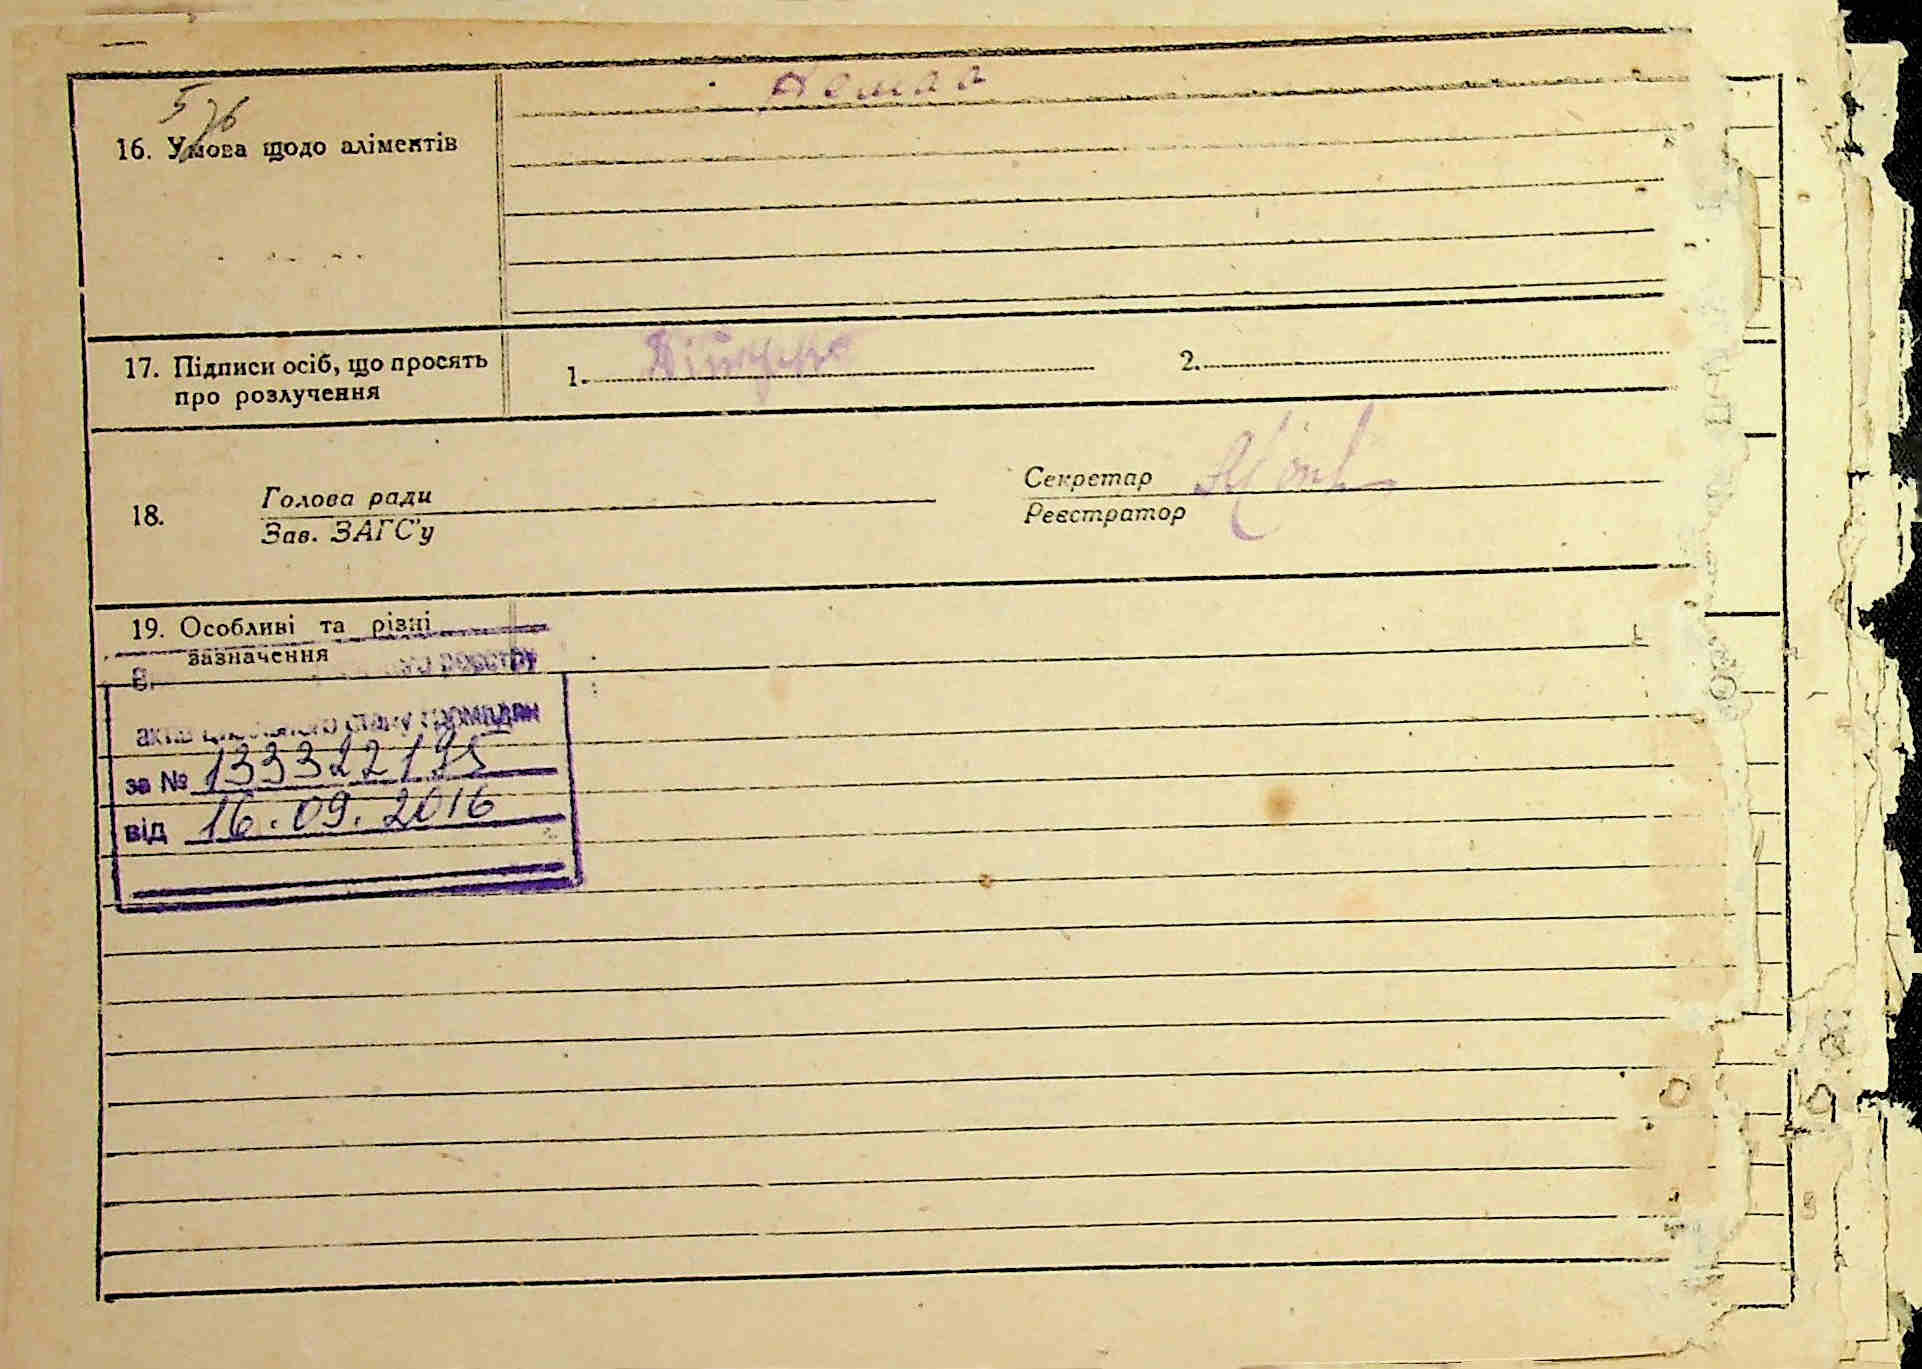 Немає
576
16. Умова щодо аліментів
17. Підписи осіб, що просять
про розлучення
1.
2.
18.
Голова ради
Зав. ЗАГС'у
Секретар
Реєстратор
19. Особливі та різні
зазначення
реєстру
актів цивільного стану громадян
за № 133322195
від 16.09.2016